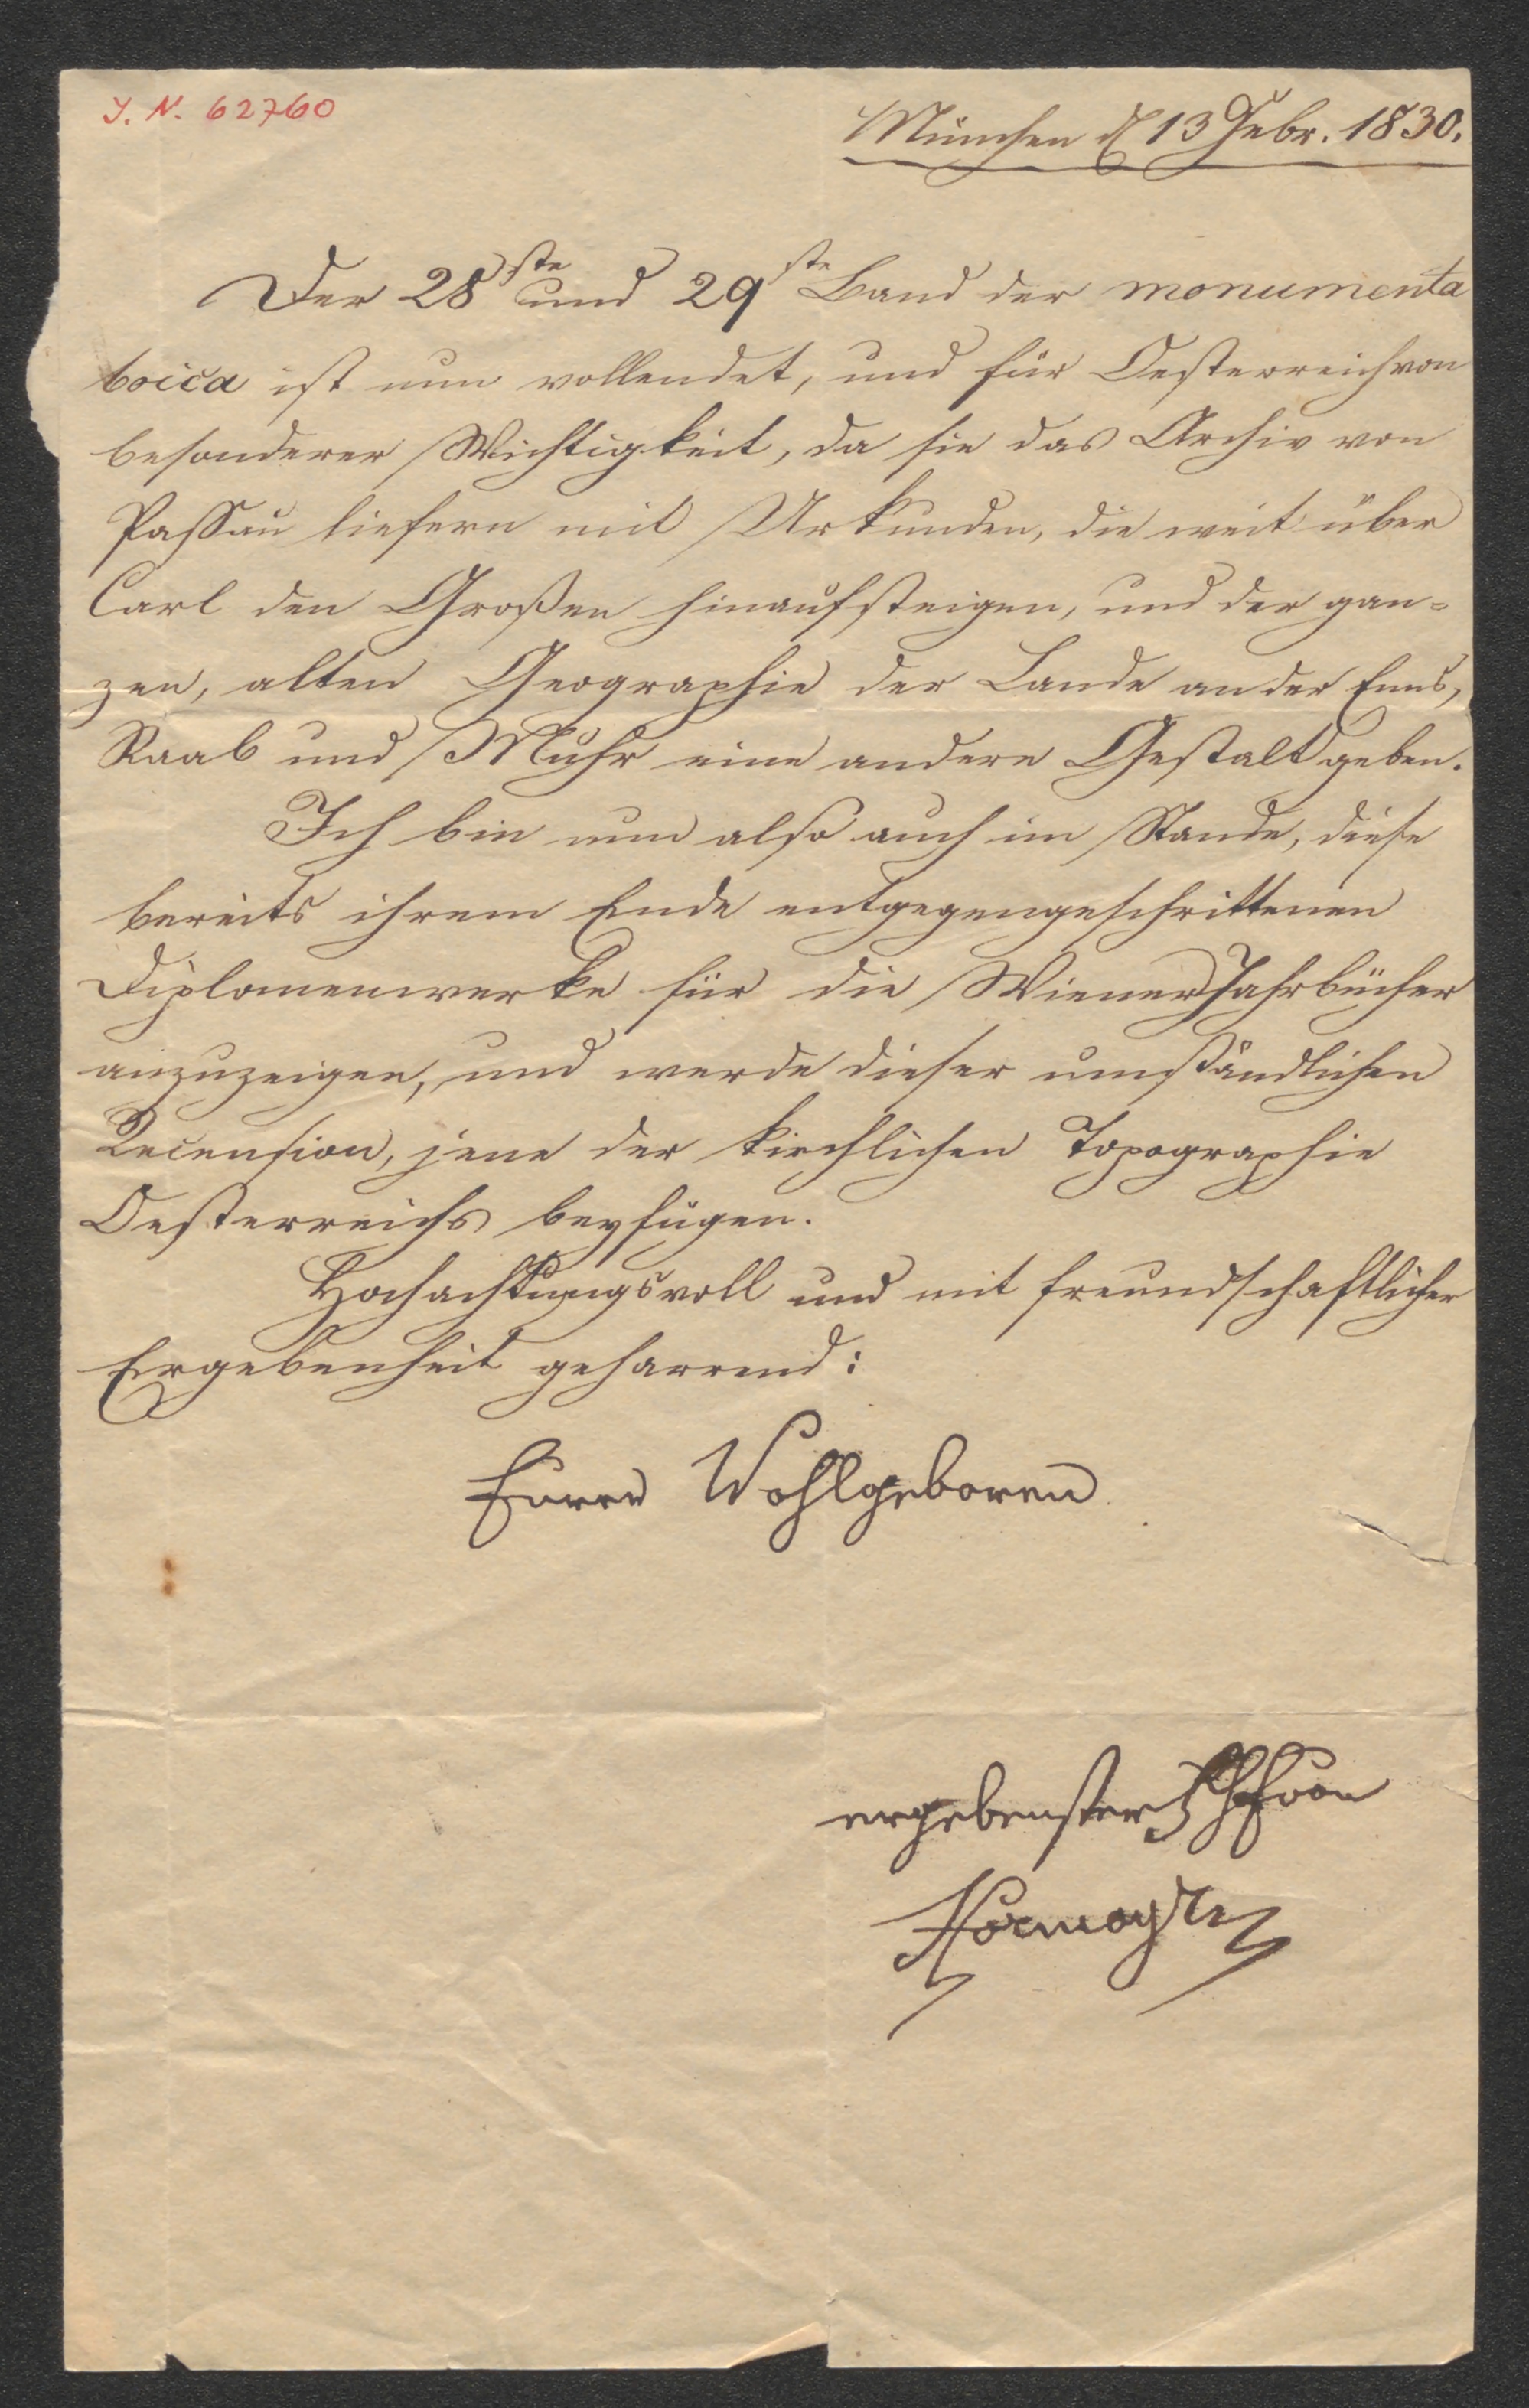 J. N. 62760
München d 13 Febr. 1830.
Der 28ste und 29ste Band der monumenta
boica ist nun vollendet, und für Oesterreich von
besonderer Wichtigkeit, da sie das Archiv von
Passau liefern mit Urkunden, die weit über
Carl den Großen hinaufsteigen, und der gan=
zen, alten Geographie der Lande an der Enns,
Raab und Muhr eine andere Gestalt geben.
Ich bin nun also auch im Stande, diese
bereits ihrem Ende entgegengeschrittenen
Diplomenwerke für die Wiener Jahrbücher
anzuzeigen, und werde dieser umständlichen
Recension, jene der kirchlichen Topographie
Oesterreichs beyfügen.
Hochachtungsvoll und mit freundschaftlicher
Ergebenheit geharrend:
Euere Wohlgeboren
ergebenster
Hormayr